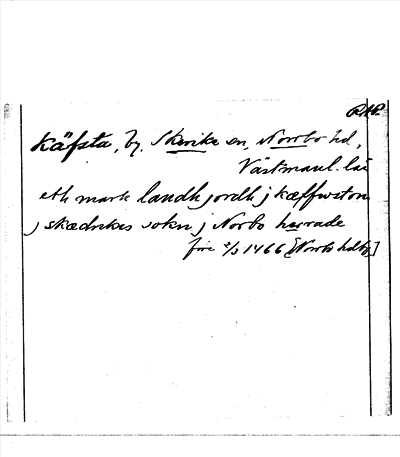 RAP.
Käfsta, by, Skerike sn, Norrbo hd,
Västmanl. län
eth mark landh jordh j kæffwestom
j skædrikes sokn j Norbo herrade
fire 2/3 1466 [Norrbo hdbg]